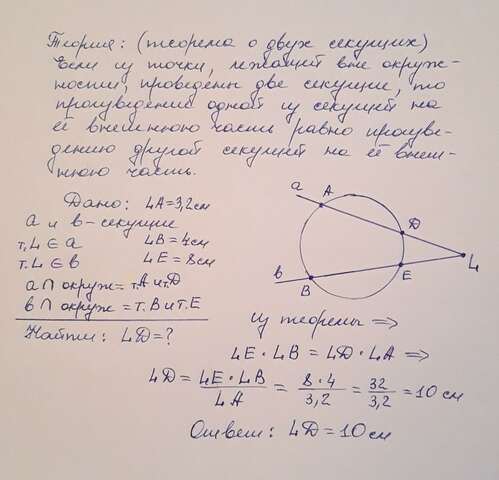 Теория: (теорема о двух секущих)
Если из точки, лежащей вне окруж-
ности, проведены две секущие, то
произведение одной из секущей на
её внешнюю часть равно произве-
дению другой секущей на её внеш-
нюю часть.
Дано: LA=3,2см
a и b-секущие
LB=4см
т.L∈a
LE=8см
т.L∈b
a∩окруж=т.Aит.D
b∩окруж=т.Bит.E
Найти: LD=?
a
A
D
L
E
B
b
Из теоремы ⇒
LE·LB=LD·LA ⇒
LD= LE·LB / LA = 8·4 / 3,2 = 32 / 3,2 =10см
Ответ: LD=10см